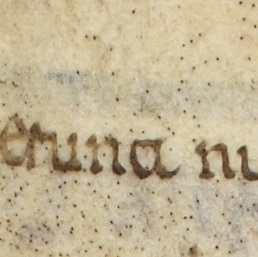 eruna nu